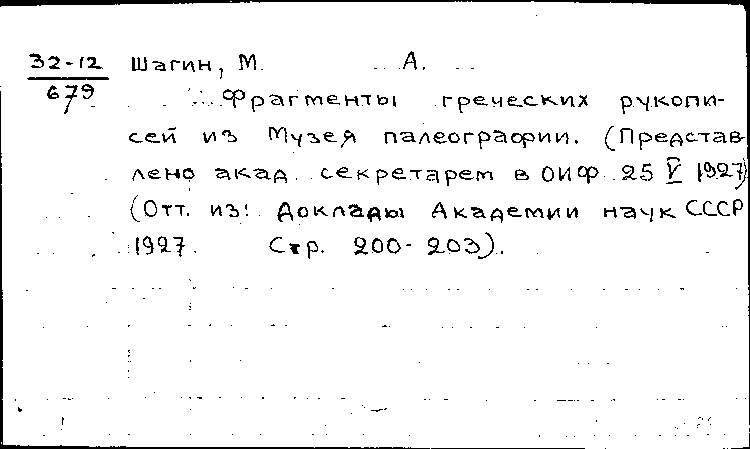 32-12 Шагин, М. А.
679 Фрагменты греческих рукопи-
сей из Музея палеографии. (Представ-
лено акад. секретарем в ОИФ 25 V 1927)
(Отт. из: Доклады Академии наук СССР
1927. Стр. 200-203).